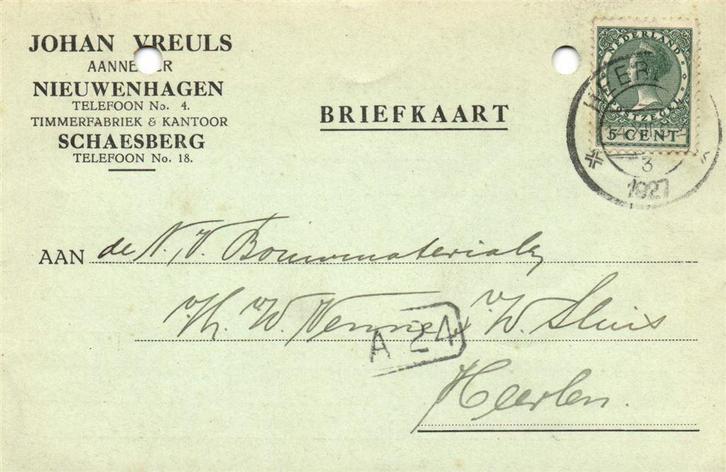 JOHAN VREULS
AANNEMER
NIEUWENHAGEN
TELEFOON No. 4.
TIMMERFABRIEK & KANTOOR
SCHAESBERG
TELEFOON No. 18.
BRIEFKAART
NEDERLAND
POSTZEGEL
5 CENT
HEERL
3
1927
AAN de N.V. Bouwmaterialen
W. Sluis
A 24
Heerlen.